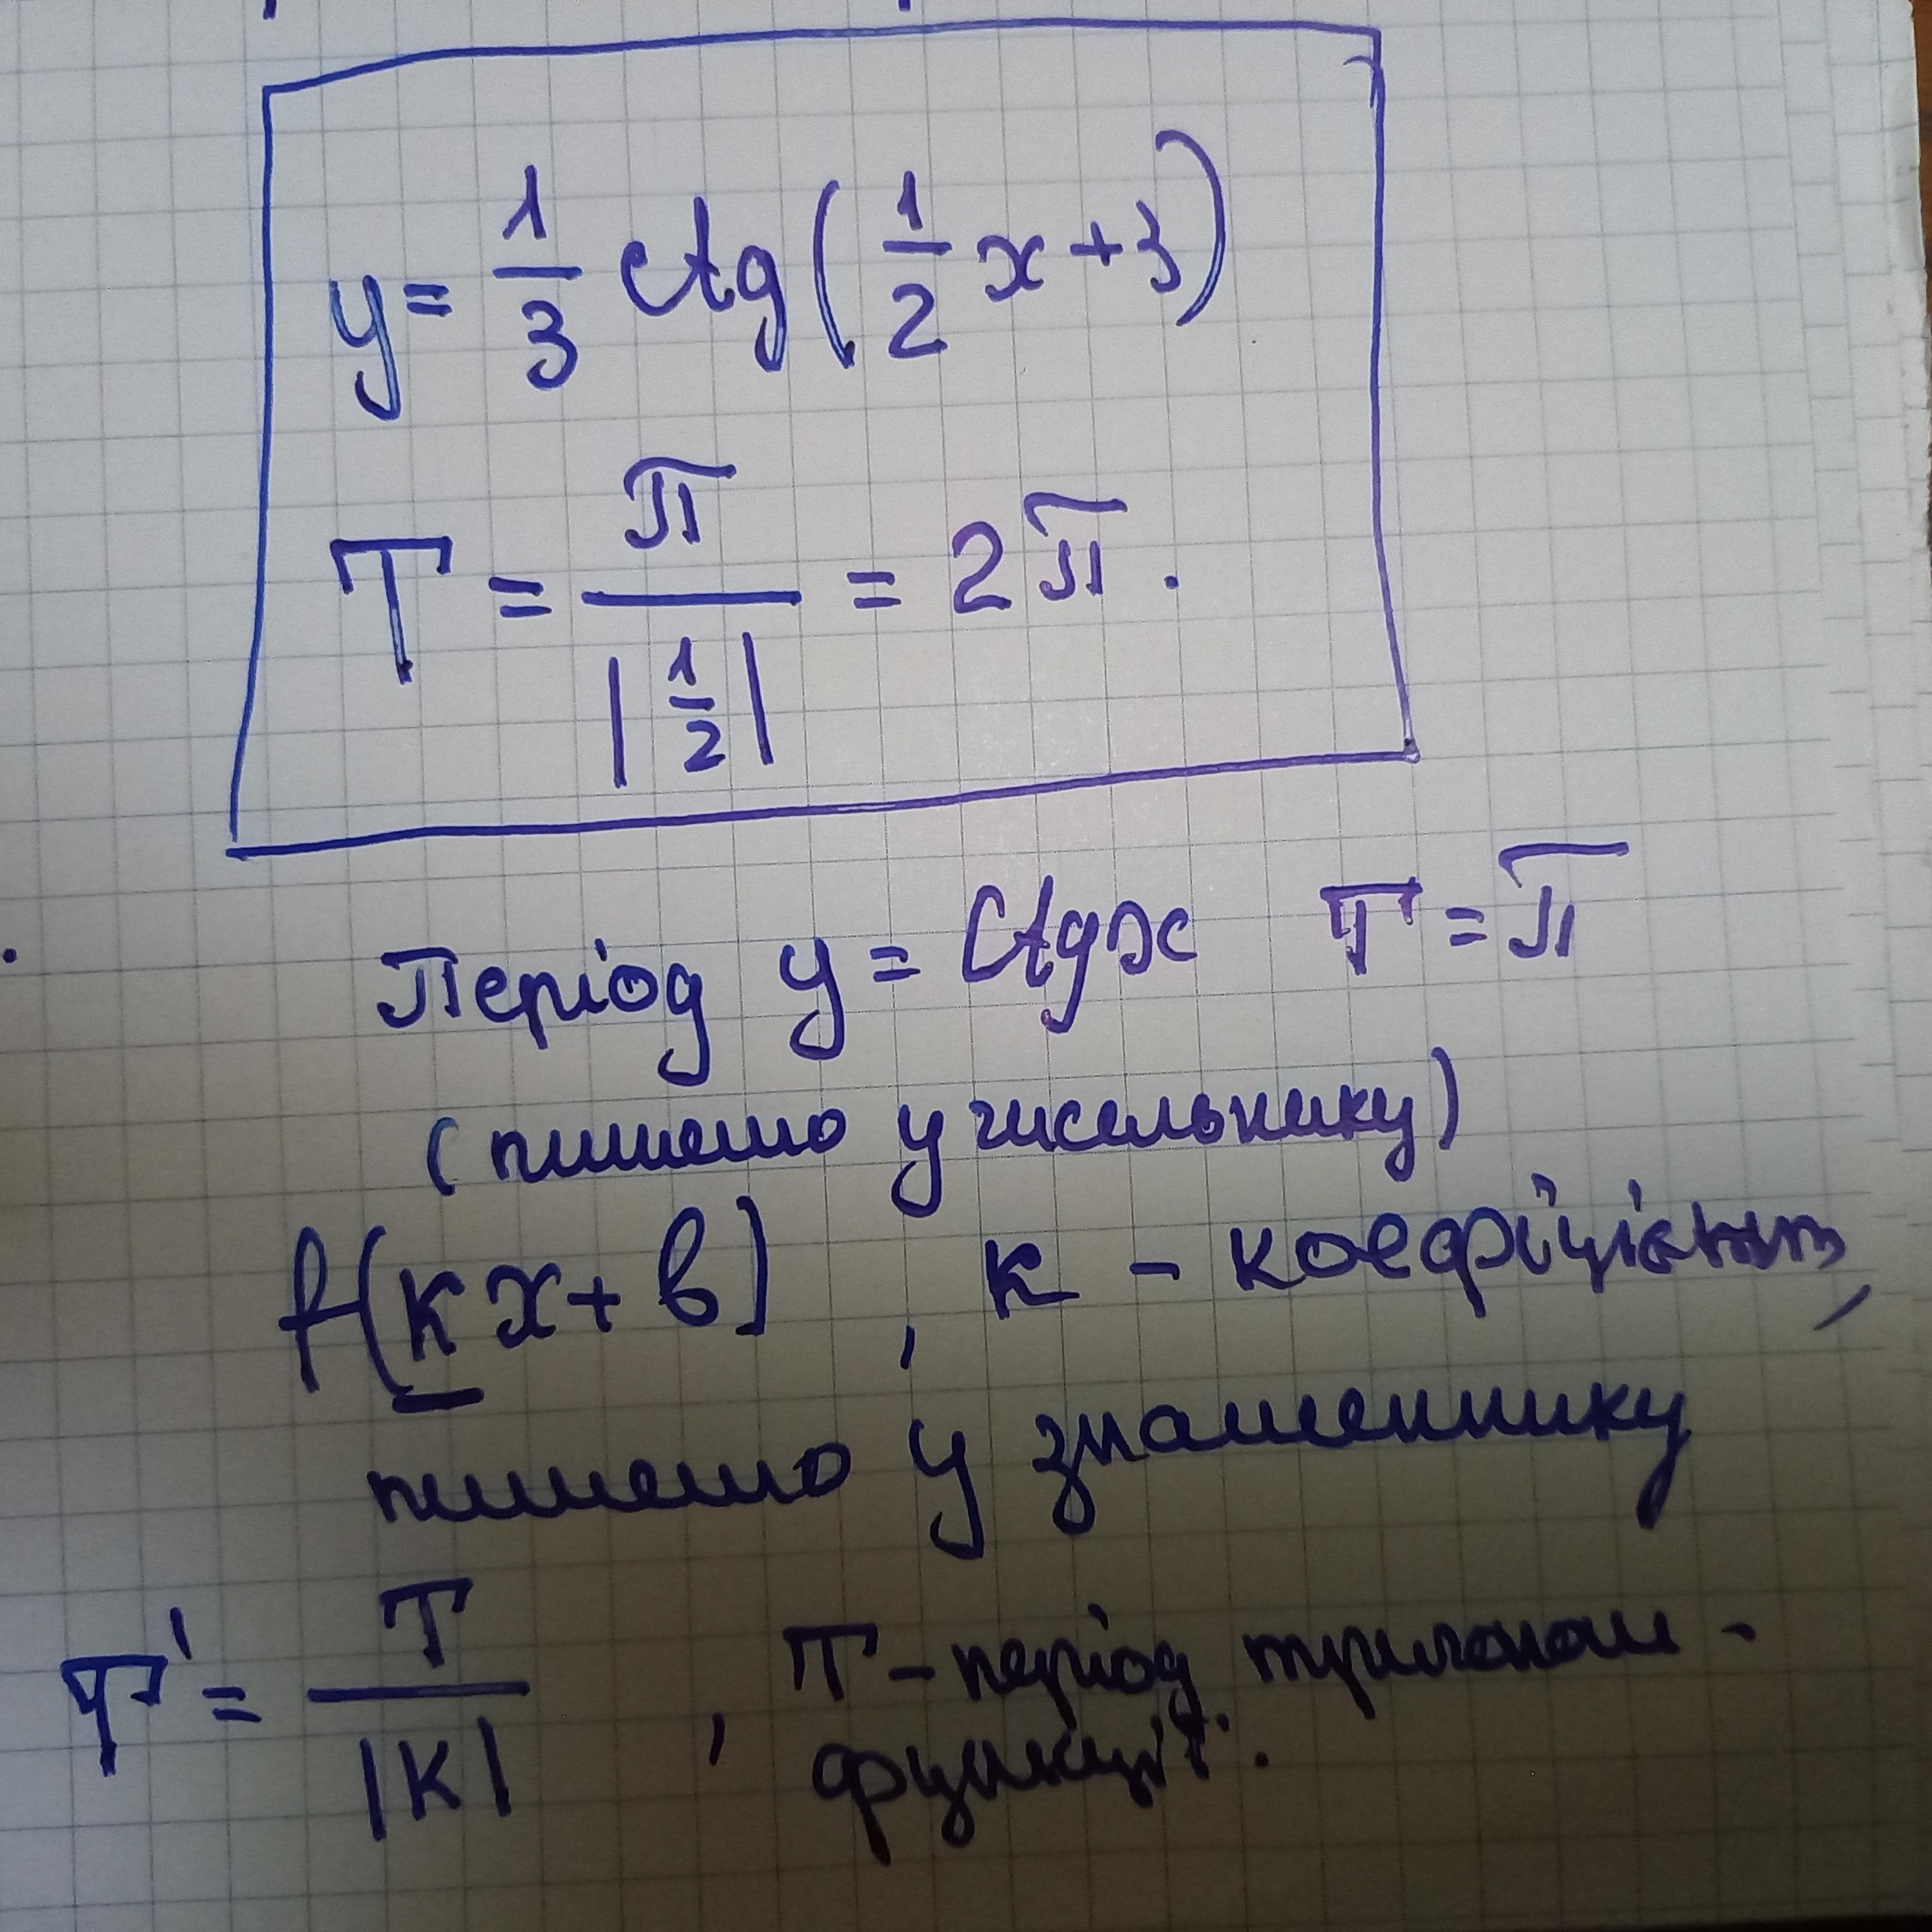 y = 1/3 ctg(1/2 x + 3)
T = π / |1/2| = 2π.
Період y = ctgx T = π
(пишемо у чисельнику)
f(kx + b) , k - коефіцієнт,
пишемо у знаменнику
T' = T / |k| , T - період тригоном -
функції.